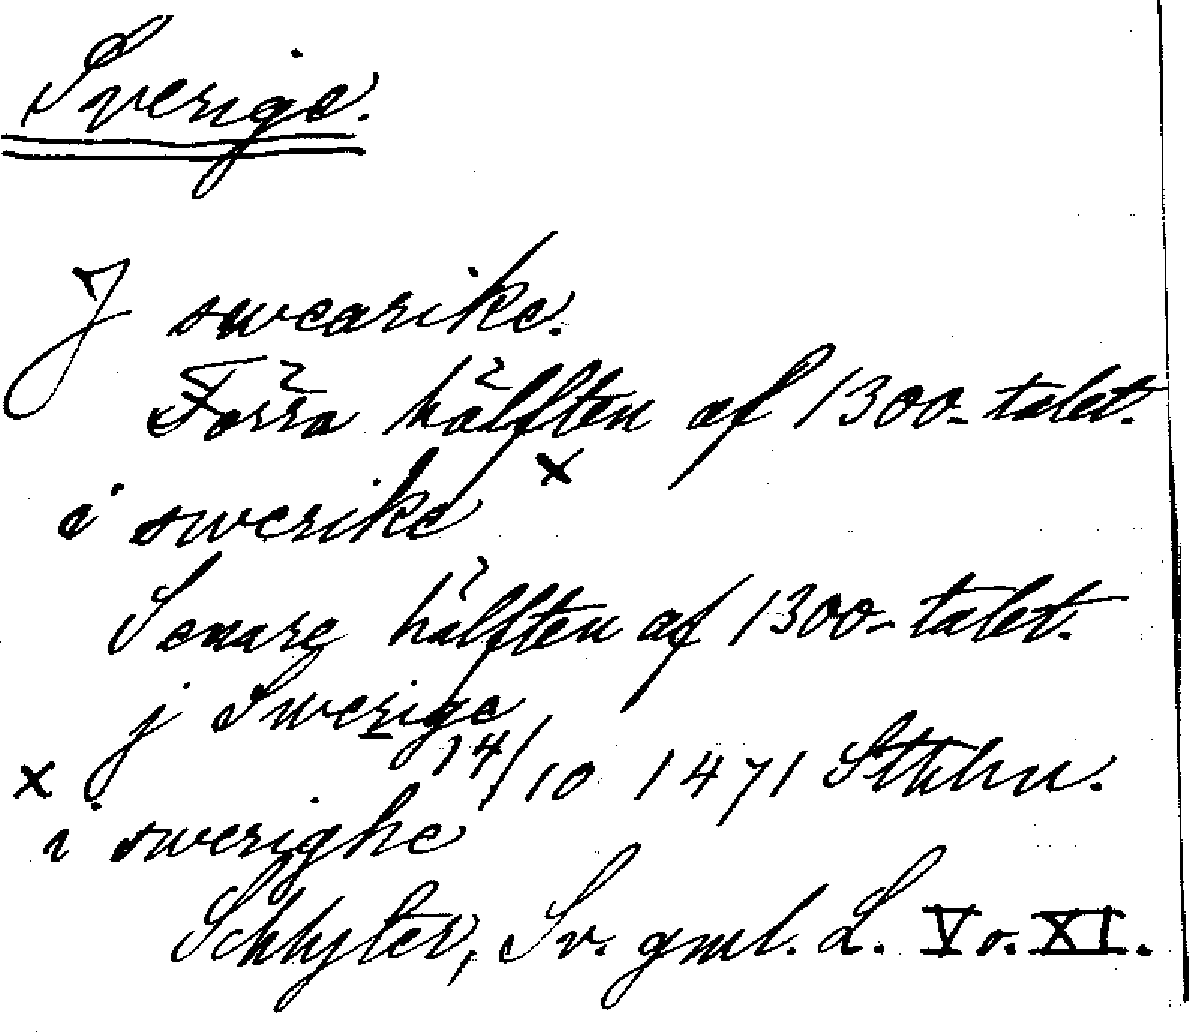 Sverige.
J swearike.
Förra hälften af 1300-talet.
x
i swerike
Senare hälften af 1300-talet.
j Swerige
14/10 1471 Sthlm.
x
i swerighe
Schlyter, Sv. gml. L. V o. XI.